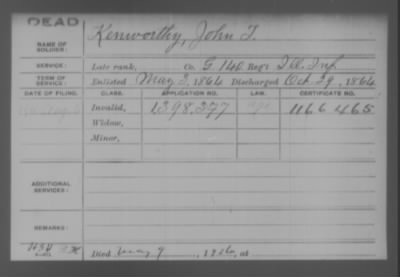 DEAD
NAME OF SOLDIER: Kenworthy, John T.
SERVICE: Late rank, Co. G. 140 Reg't Ill. Inf.
TERM OF SERVICE: Enlisted May 3, 1864 Discharged Oct. 29, 1864
DATE OF FILING. CLASS. APPLICATION NO. LAW. CERTIFICATE NO.
Invalid, 1398.377 1166465
Widow,
Minor,
ADDITIONAL SERVICES:
REMARKS:
Died May 9, at